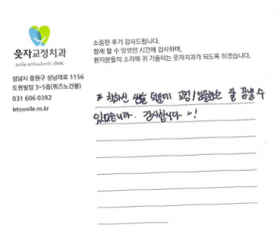 웃자교정치과
smile orthodontic clinic
성남시 중원구 성남대로 1156
도원빌딩 3~5층(위즈노건물)
031 606 0282
letssmile.co.kr
소중한 후기 감사드립니다.
함께 할 수 있었던 시간에 감사하며,
환자분들의 소리에 귀 기울이는 웃자치과가 되도록 하겠습니다.
친절하신 쌤들 덕분에 교정/ 잘 끝낼 수
있었습니다. 감사합니다 ~!